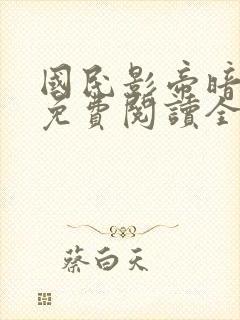 國民影帝暗
免費閱讀全
蔡白天